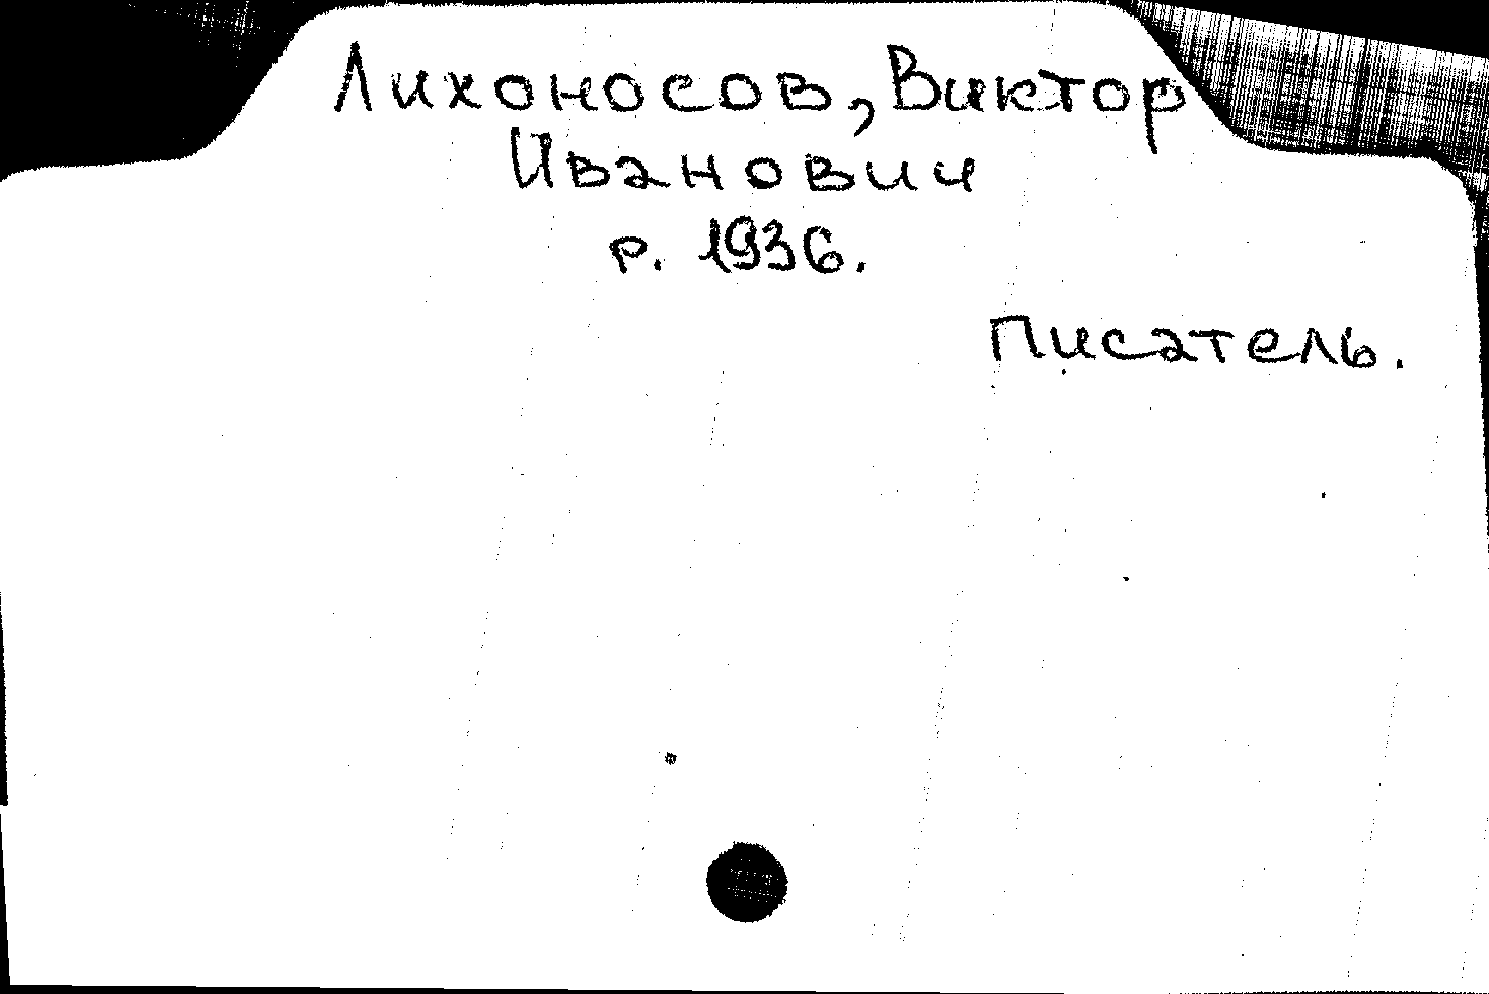 Лихоносов, Виктор
Иванович
р. 1936.
писатель.